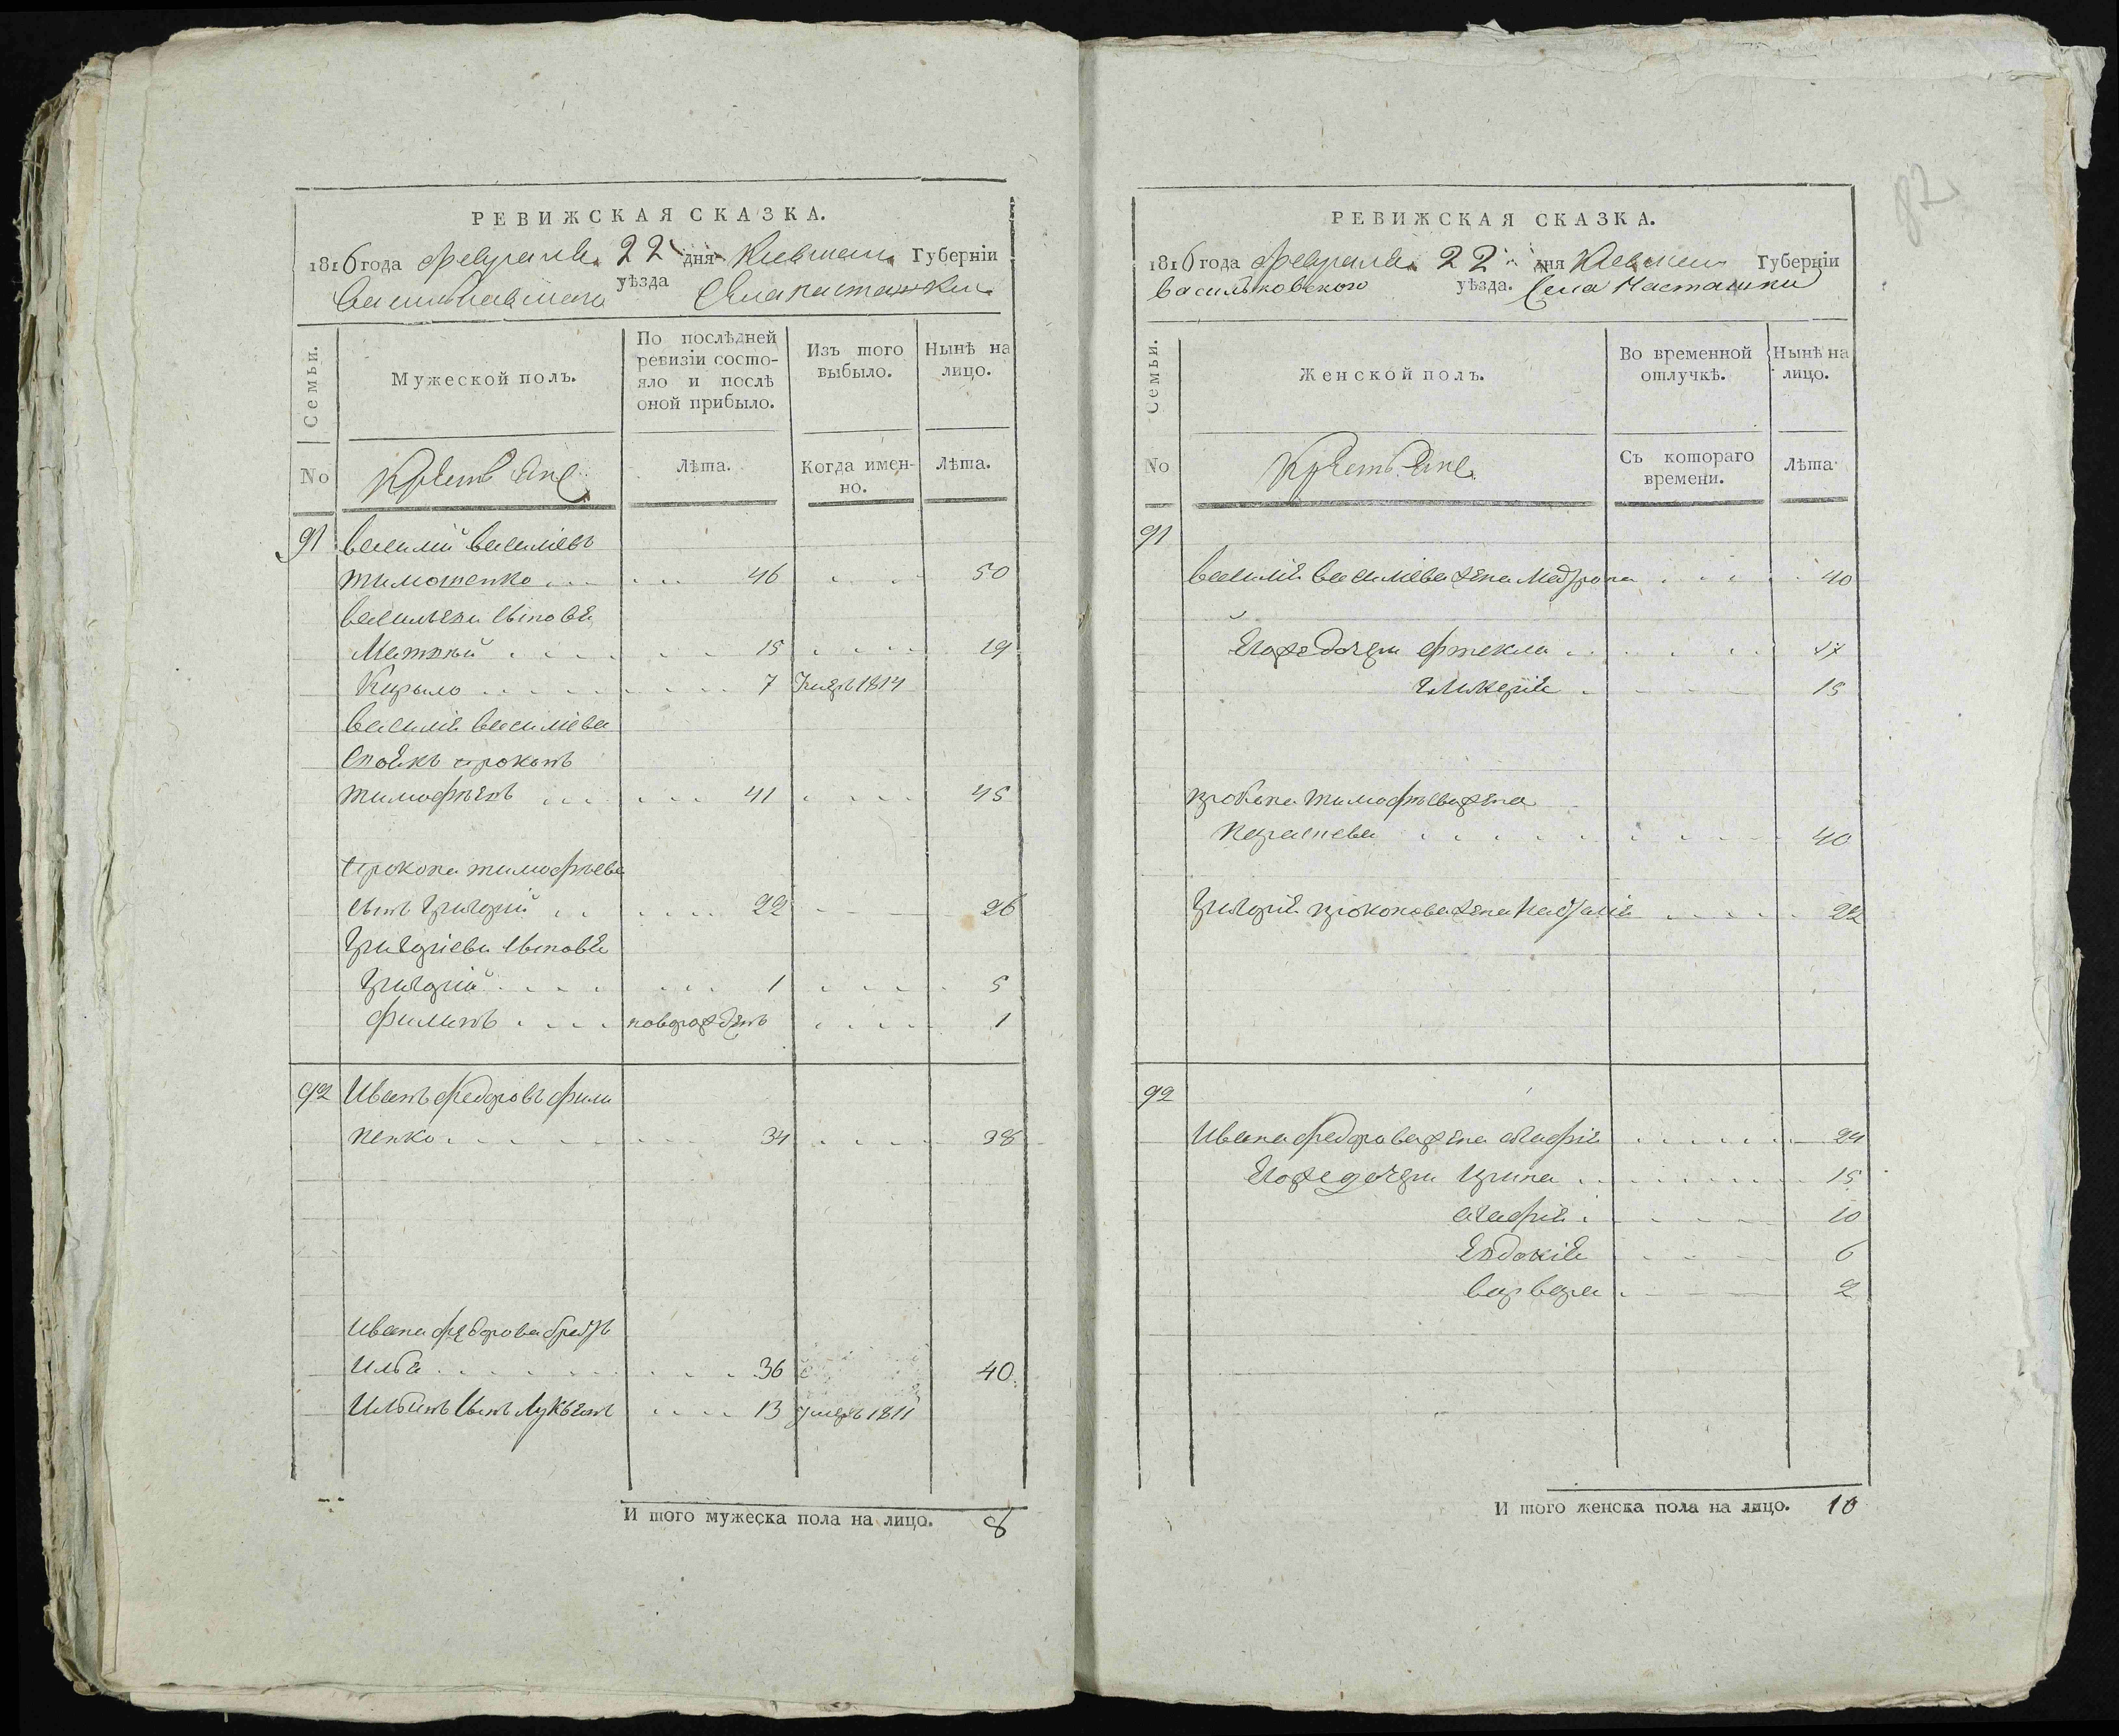 РЕВИЖСКАЯ СКАЗКА.
1816 года февраля 22 дня Киевской Губерніи
Васильковскаго уѣзда Села Насташки
Семьи.
Мужеской полъ.
По послѣдней ревизіи состо-
яло и послѣ оной прибыло.
Изъ того выбыло.
Нынѣ на лицо.
No
Крестьяне
Лѣта.
Когда имен-
но.
Лѣта.
91 Василій Василіевъ
Тимошенко 46 50
Василіеви сыновья
Матвѣй 15 19
Кирыло 7 умеръ 1814
Василія Василіева
своякъ Прокопъ
Тимофѣевъ 41 45
Прокопа Тимофѣева
сынъ Григорій 22 26
Григоріеви сыновья
Григорій 1 5
Филипъ новорожденъ 1
92 Иванъ Федоровъ Фили
пенко 34 38
Ивана Федорова братъ
Илья 36 40
Ильинъ сынъ Лукьянъ 13 умеръ 1811
И того мужеска пола на лицо. 8
82
РЕВИЖСКАЯ СКАЗКА.
1816 года февраля 22 дня Киевской Губерніи
Васильковского уѣзда. Села Насташки
Семьи.
Женской полъ.
Во временной отлучкѣ.
Нынѣ на лицо.
No
Крестьяне
Съ котораго времени.
Лѣта
91
Василія Василіева жена Мотрона 40
Его же дочери Фтекла 17
Гликерія 15
Прокопа Тимофѣева жена
Параскева 40
Григорія Прокопова жена Наталія 22
92
Ивана Федорова жена Агафія 24
Его же дочери Ирина 15
Агафія 10
Евдокія 6
Варвара 2
И того женска пола на лицо. 10